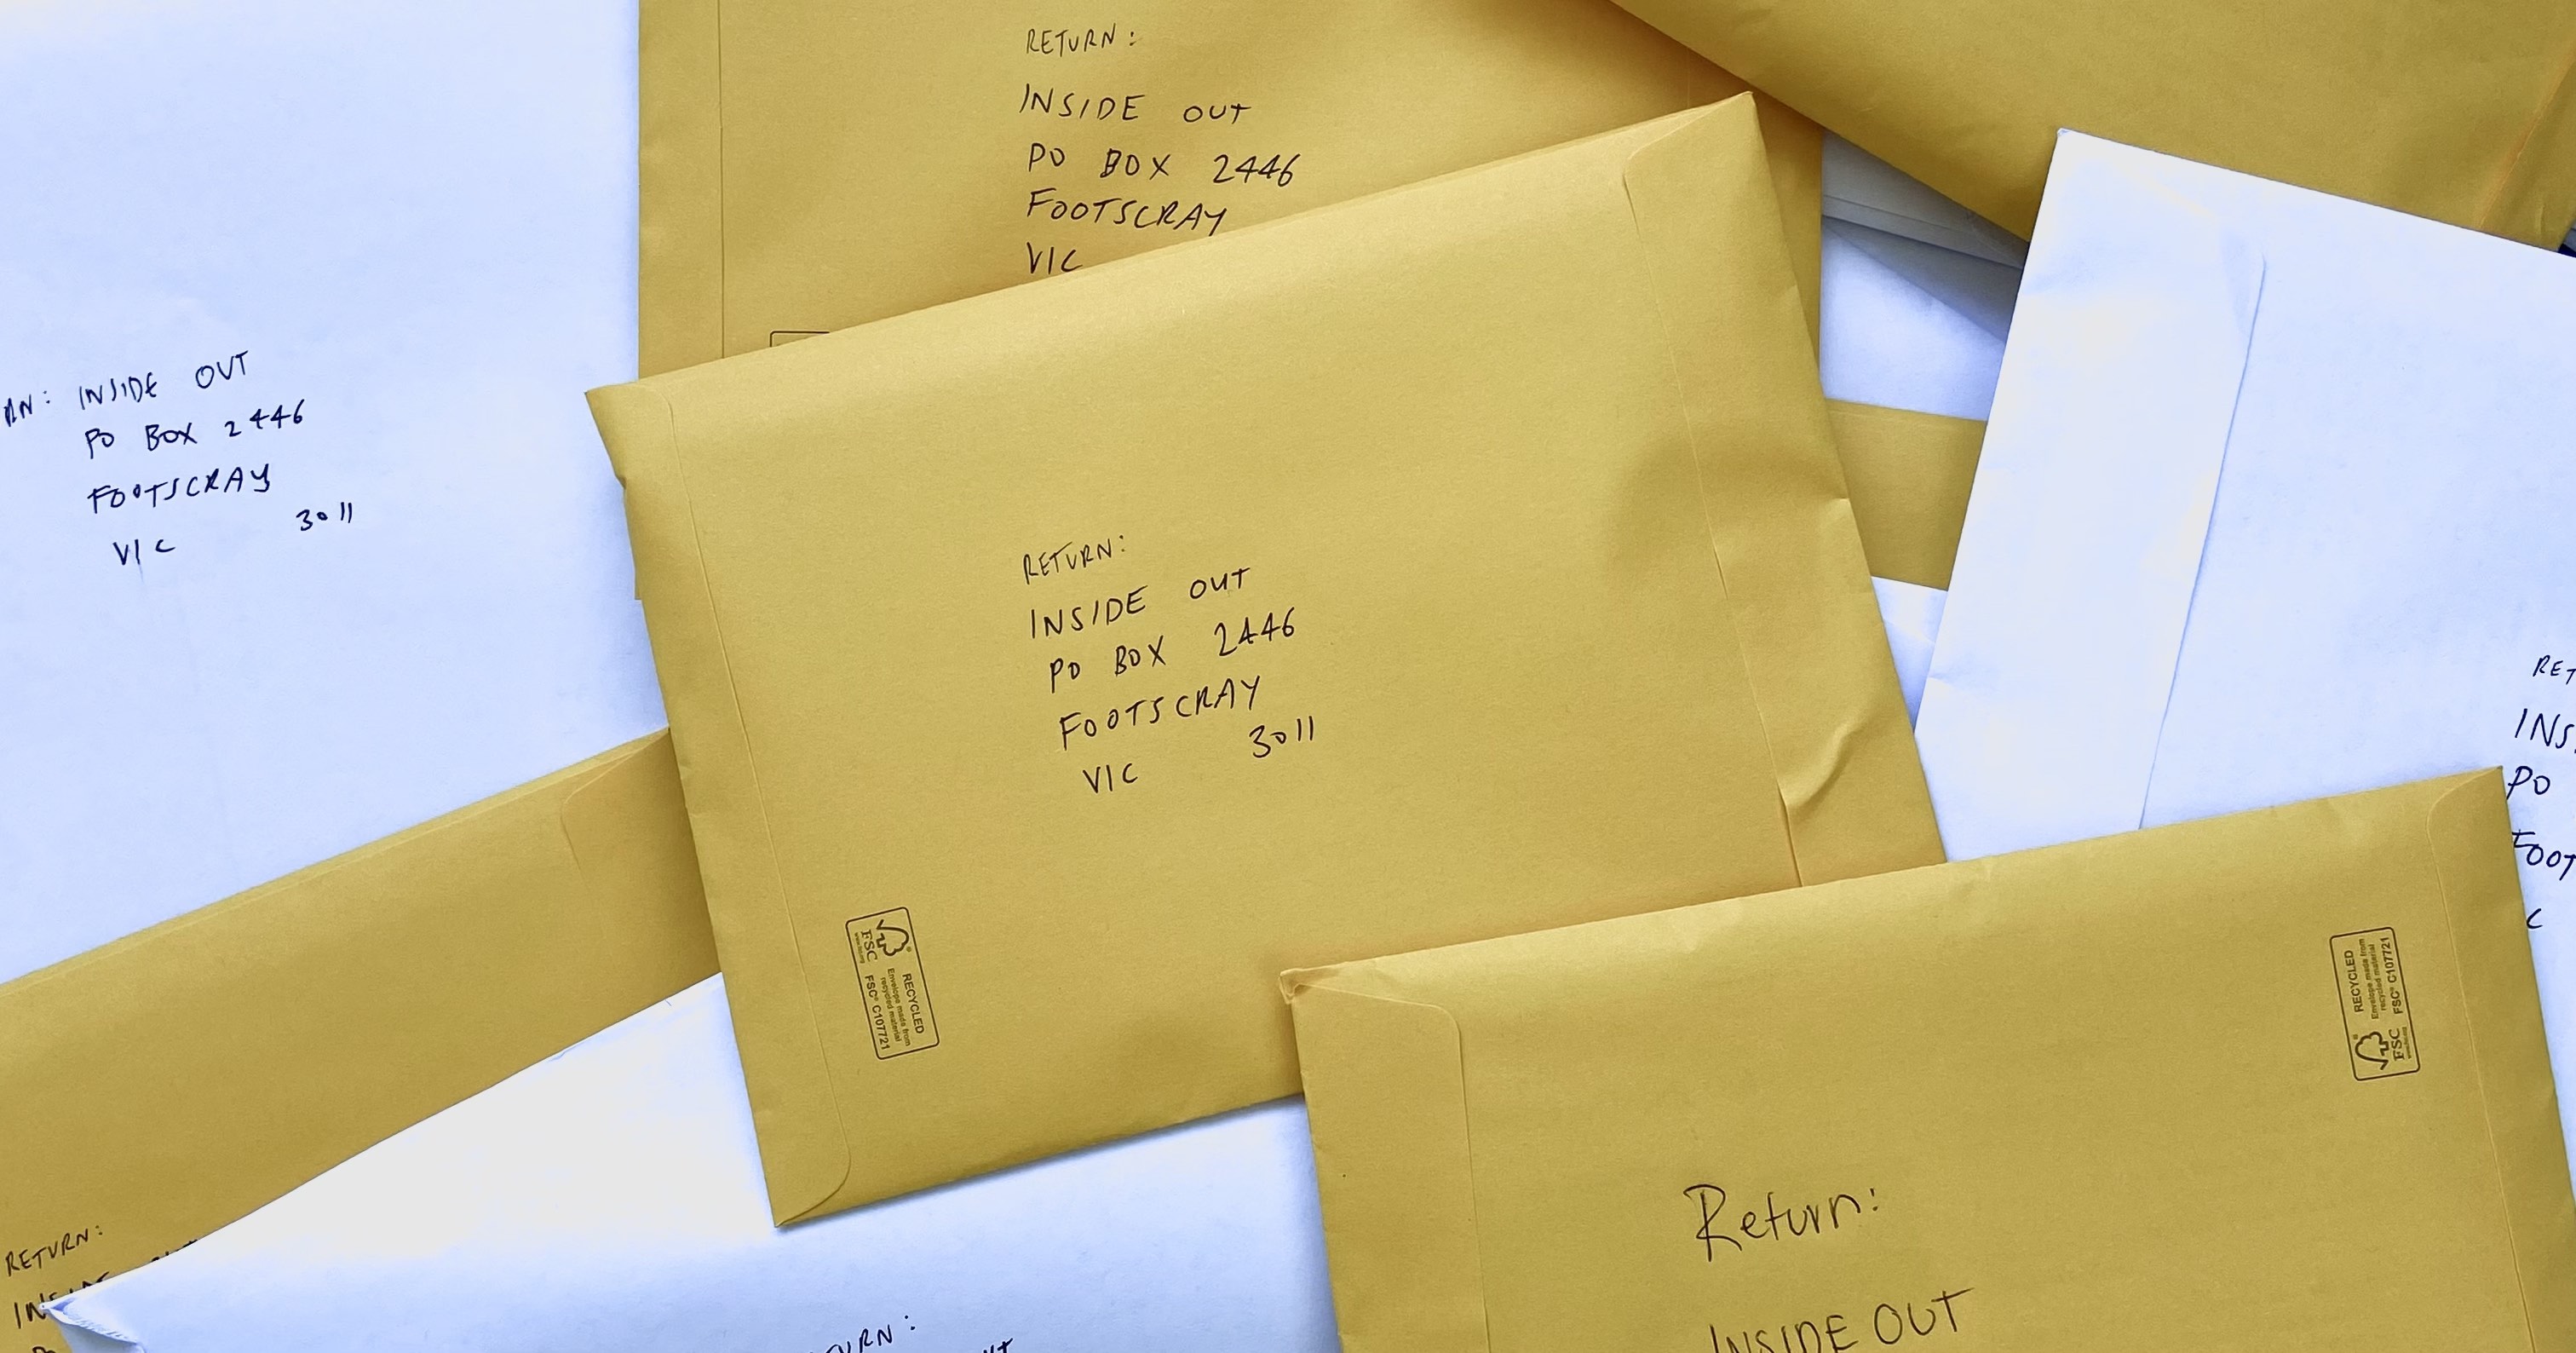 RETURN:
INSIDE OUT
PO BOX 2446
FOOTSCRAY
VIC
RN: INSIDE OUT
PO BOX 2446
FOOTSCRAY
VIC 3011
RETURN:
INSIDE OUT
PO BOX 2446
FOOTSCRAY
VIC 3011
RECYCLED
Envelope made from
recycled material
FSC® C107721
FSC
RET
INS
PO
FOOT
C
RECYCLED
Envelope made from
recycled material
FSC® C107721
FSC
Return:
INSIDE OUT
RETURN:
URN: